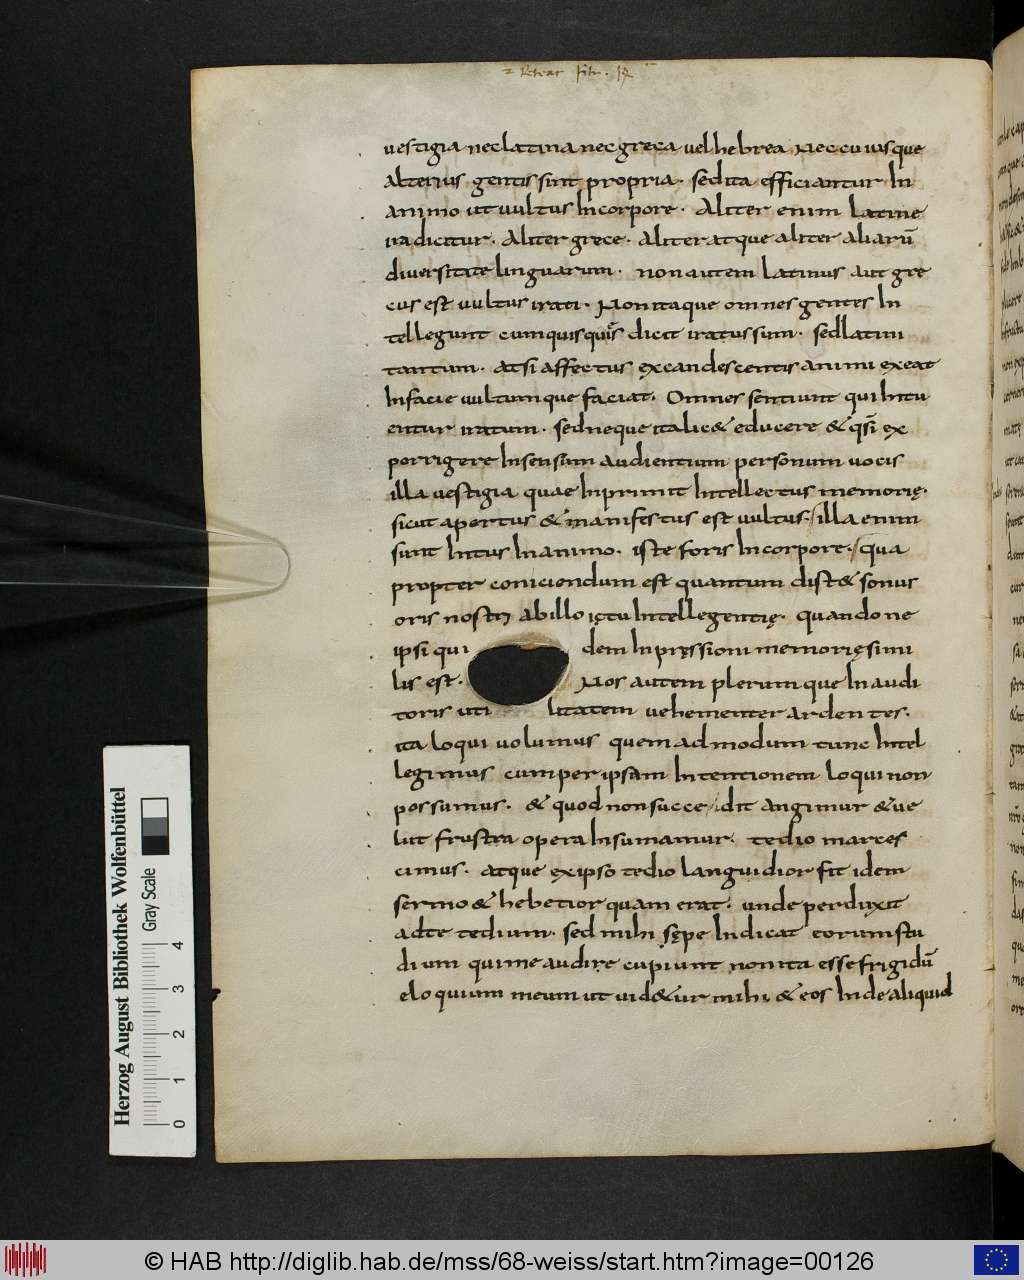 vestigia nec latina nec greca vel hebrea Nec cuiusque
alterius gentis sunt propria. sed ita efficiantur In
animo ut vultus In corpore. Aliter enim latine
ira dicitur. Aliter grece. aliter atque aliter aliarū
diversitate linguarum. non autem latinus aut gre
cus est vultus irati. Non itaque omnes gentes In
tellegunt cum quisquis dicit iratus sum. sed latini
tantum. at si affectus excandescentis animi exeat
In facie vultumque faciat. Omnes sentiunt qui Intu
entur iratum. sed neque ita lic& educere & qsi ex
porrigere In sensum audientium per sonum vocis
illa vestigia quae Inprimit Intellectus memorię.
sicut apertus & manifestus est vultus. illa enim
sunt Intus In animo. iste foris In corpore. qua
propter coniciendum est quantum dist& sonus
oris nostri ab illo ictu Intellegentię. quando ne
ipsi qui dem Inpressioni memorię simi
lis est. Nos autem plerumque In audi
toris uti litatem vehementer ardentes.
ita loqui volumus quemadmodum tunc Intel
legimus cum per ipsam Intentionem loqui non
possumus. & quod non succedit angimur & ve
lut frustra opera Insumamur. tedio marces
cimus. atque ex ipso tedio languidior fit idem
sermo & hebetior quam erat. unde perduxit
ad te tedium. sed mihi sępe Indicat eorum stu
dium qui me audire cupiunt non ita esse frigidū
eloquium meum ut vid&ur mihi & eos Inde aliquid
Herzog August Bibliothek Wolfenbüttel
Gray Scale
0 1 2 3 4
© HAB http://diglib.hab.de/mss/68-weiss/start.htm?image=00126